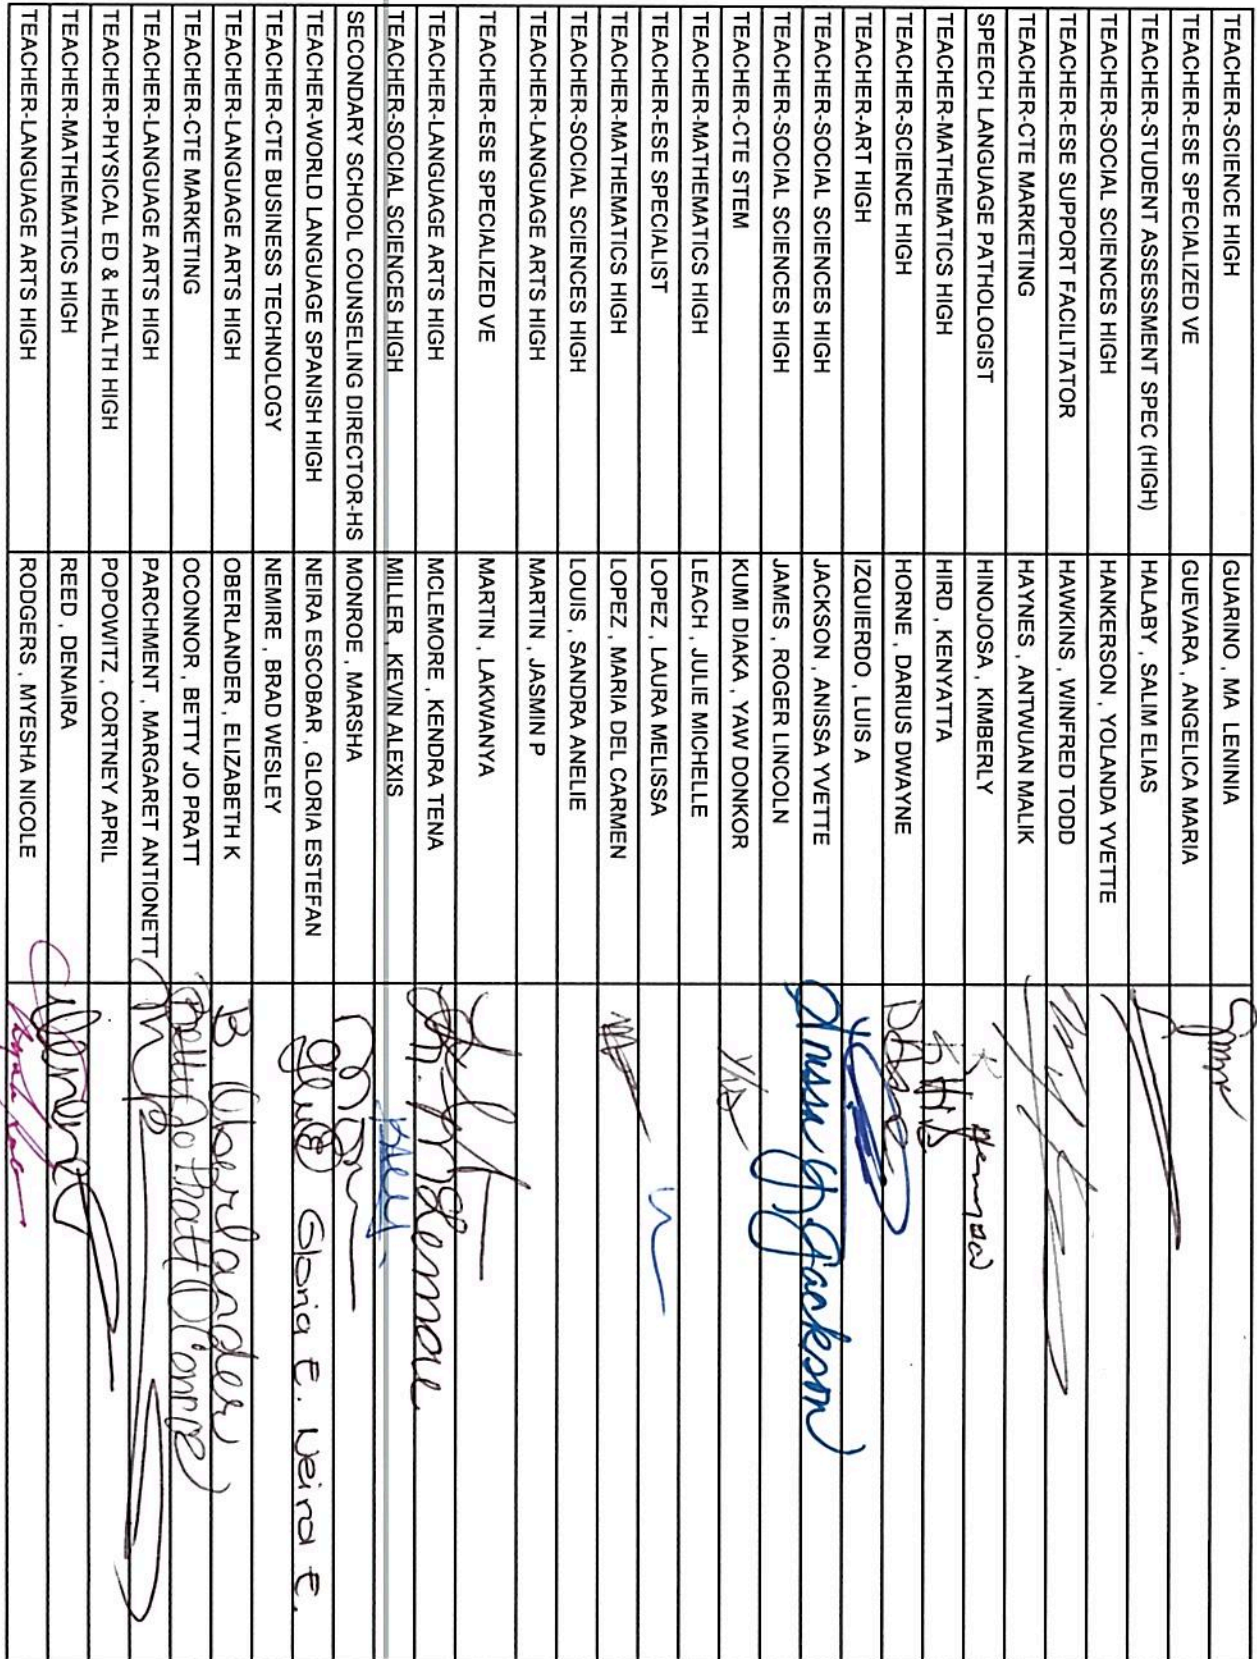 TEACHER-SCIENCE HIGH GUARINO , MA LENINIA
TEACHER-ESE SPECIALIZED VE GUEVARA , ANGELICA MARIA
TEACHER-STUDENT ASSESSMENT SPEC (HIGH) HALABY , SALIM ELIAS
TEACHER-SOCIAL SCIENCES HIGH HANKERSON , YOLANDA YVETTE
TEACHER-ESE SUPPORT FACILITATOR HAWKINS , WINFRED TODD
TEACHER-CTE MARKETING HAYNES , ANTWUAN MALIK
SPEECH LANGUAGE PATHOLOGIST HINOJOSA , KIMBERLY
TEACHER-MATHEMATICS HIGH HIRD , KENYATTA
TEACHER-SCIENCE HIGH HORNE , DARIUS DWAYNE
TEACHER-ART HIGH IZQUIERDO , LUIS A
TEACHER-SOCIAL SCIENCES HIGH JACKSON , ANISSA YVETTE Anissa Y Jackson
TEACHER-SOCIAL SCIENCES HIGH JAMES , ROGER LINCOLN
TEACHER-CTE STEM KUMI DIAKA , YAW DONKOR
TEACHER-MATHEMATICS HIGH LEACH , JULIE MICHELLE
TEACHER-ESE SPECIALIST LOPEZ , LAURA MELISSA
TEACHER-MATHEMATICS HIGH LOPEZ , MARIA DEL CARMEN
TEACHER-SOCIAL SCIENCES HIGH LOUIS , SANDRA ANELIE
TEACHER-LANGUAGE ARTS HIGH MARTIN , JASMIN P
TEACHER-ESE SPECIALIZED VE MARTIN , LAKWANYA
TEACHER-LANGUAGE ARTS HIGH MCLEMORE , KENDRA TENA K. McLemore
TEACHER-SOCIAL SCIENCES HIGH MILLER , KEVIN ALEXIS
SECONDARY SCHOOL COUNSELING DIRECTOR-HS MONROE , MARSHA
TEACHER-WORLD LANGUAGE SPANISH HIGH NEIRA ESCOBAR , GLORIA ESTEFAN Gloria E. Neira E.
TEACHER-CTE BUSINESS TECHNOLOGY NEMIRE , BRAD WESLEY
TEACHER-LANGUAGE ARTS HIGH OBERLANDER , ELIZABETH K Oberlander
TEACHER-CTE MARKETING OCONNOR , BETTY JO PRATT Betty Jo Pratt O'Connor
TEACHER-LANGUAGE ARTS HIGH PARCHMENT , MARGARET ANTIONETT
TEACHER-PHYSICAL ED & HEALTH HIGH POPOWITZ , CORTNEY APRIL
TEACHER-MATHEMATICS HIGH REED , DENAIRA
TEACHER-LANGUAGE ARTS HIGH RODGERS , MYESHA NICOLE